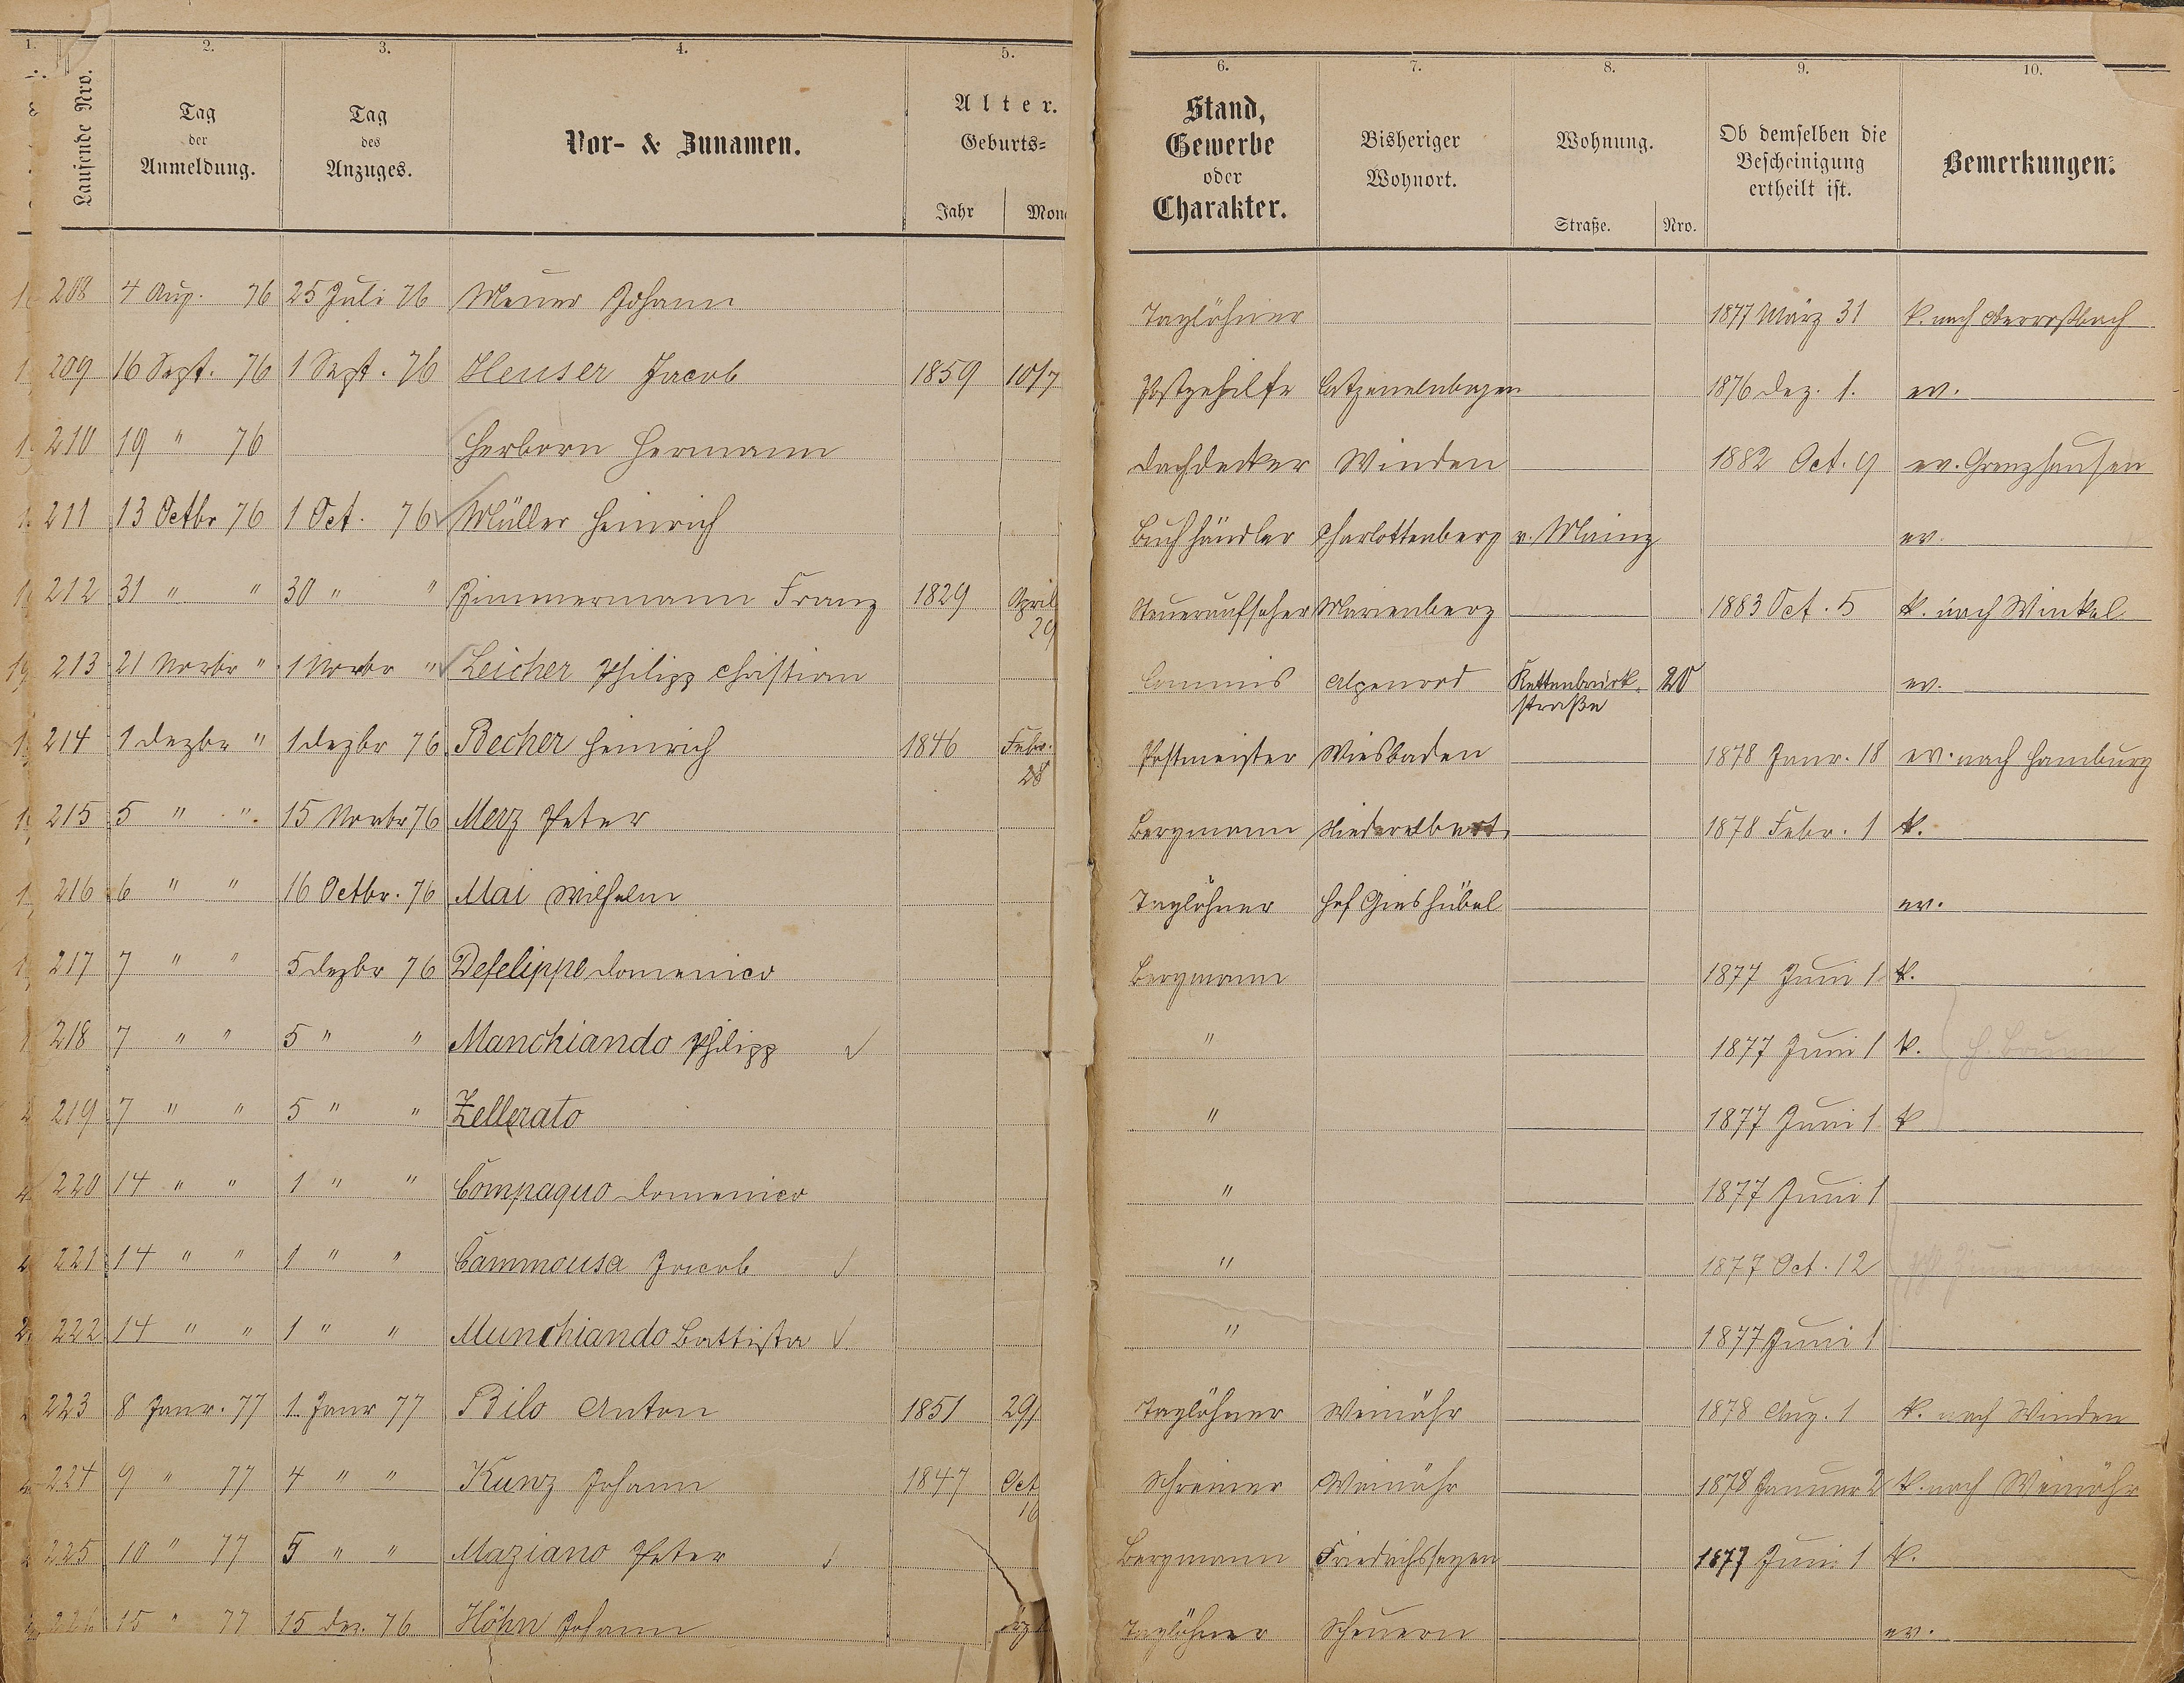 1. 2. 3. 4. 5. 6. 7. 8. 9. 10.
Laufende Nro. Tag der Anmeldung. Tag des Anzuges. Vor- & Zunamen. Alter. Geburts- Jahr Mon Stand, Gewerbe oder Charakter. Bisheriger Wohnort. Wohnung. Straße. Nro. Ob demselben die Bescheinigung ertheilt ist. Bemerkungen.
208 4 Aug. 76 25 Juli 76 Meuer Johann Taglöhner 1877 März 31 k. nach Oberroßbach
209 16 Sept. 76 1 Sept. 76 Heuser Jacob 1859 10/7 Postgehilfe Catzenelnbogen 1876 Dez. 1. ev.
210 19 " 76 Herborn Hermann Dachdecker Winden 1882 Oct. 9 ev. Grenzhausen
211 13 Octbr 76 1 Oct. 76 Müller Heinrich Buchhändler Charlottenberg v. Mainz ev.
212 31 " " 30 " " Zimmermann Franz 1829 April 29 Steueraufseher Marienberg 1883 Oct. 5 k. nach Winkel
213 21 Novbr " 1 Novbr " Leicher Philipp Christian Commis Alpenrod Kettenbrück-straße 20 ev.
214 1 Dezbr " 1 Dezbr 76 Becher Heinrich 1846 Febr. 28 Postmeister Wiesbaden 1878 Janr. 18 ev. nach Hamburg
215 5 " " 15 Novbr 76 Merz Peter Bergmann Niederelbert 1878 Febr. 1 k.
216 6 " " 16 Octbr. 76 Mai Wilhelm Taglöhner Hof Gieshübel ev.
217 7 " " 5 Dezbr 76 Defelippe Domenico Bergmann 1877 Juni 1 k.
218 7 " " 5 " " Manchiando Philipp " 1877 Juni 1 k.
219 7 " " 5 " " Zellerato " 1877 Juni 1 k
220 14 " " 1 " " Compaquo Domenico " 1877 Juni 1
221 14 " " 1 " " Cammousa Jacob " 1877 Oct. 12
222 14 " " 1 " " Munchiando Battista " 1877 Juni 1
223 8 Janr. 77 1 Janr 77 Bilo Anton 1851 29/ Taglöhner Weinähr 1878 Aug. 1 k. nach Winden
224 9 " 77 4 " " Kunz Johann 1847 Oct 16 Schreiner Weinähr 1878 Januar 2 k. nach Weinähr
225 10 " 77 5 " " Maziano Peter Bergmann Friedrichssegen 1877 Juni 1 k.
226 15 " 77 15 Dez. 76 Höhn Johann Taglöhner Scheuern ev.